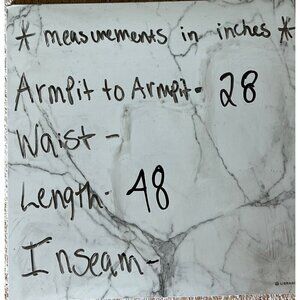 * measurements in inches *
Armpit to Armpit - 28
Waist -
Length - 48
Inseam -